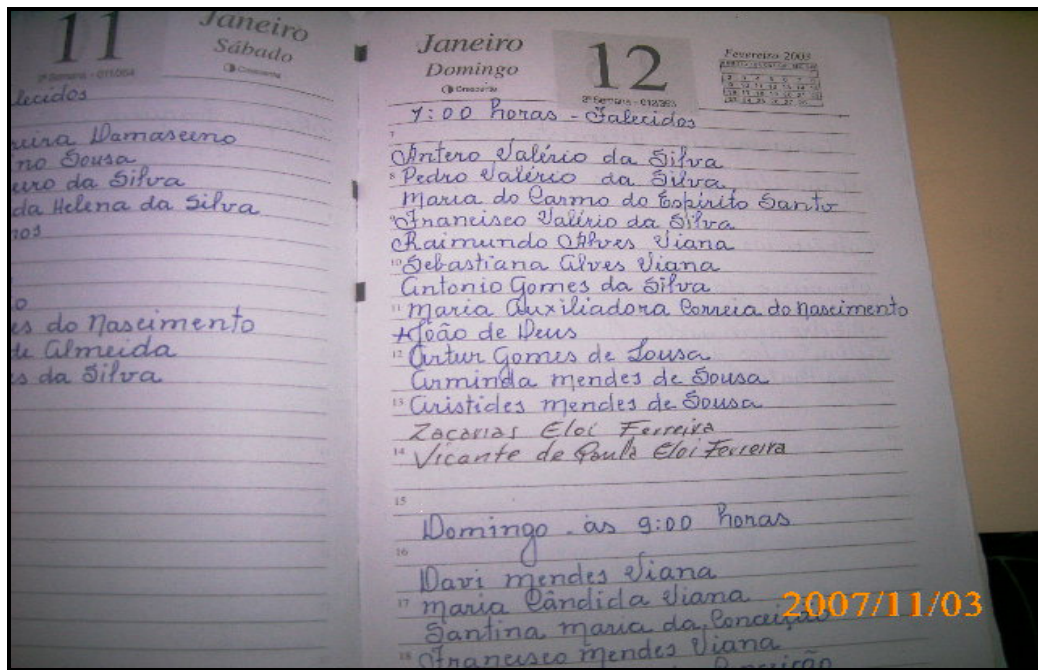 11
Janeiro
Sábado
2ª Semana - 011/354
Crescente
lecidos
eira Damasceno
no Sousa
da Silva
da Helena da Silva
nos
o
es do nascimento
de Almeida
s da Silva
Janeiro
Domingo
Crescente
12
2ª Semana - 012/353
Fevereiro 2003
7:00 horas - Falecidos
7
Antero Valério da Silva
8 Pedro Valério da Silva
Maria do Carmo do Espírito Santo
9 Francisco Valério da Silva
Raimundo Alves Viana
10 Sebastiana Alves Viana
Antonio Gomes da Silva
11 Maria Auxiliadora Correia do nascimento
+João de Deus
12 Artur Gomes de Sousa
Arminda mendes de Sousa
13 Aristides mendes de Sousa
Zacarias Eloi Ferreira
14 Vicante de Paula Eloi Ferreira
15
Domingo - às 9:00 horas
16
Davi mendes Viana
17 maria Cândida Viana
Santina maria da Conceição
18 Francisco mendes Viana
Conceição
2007/11/03